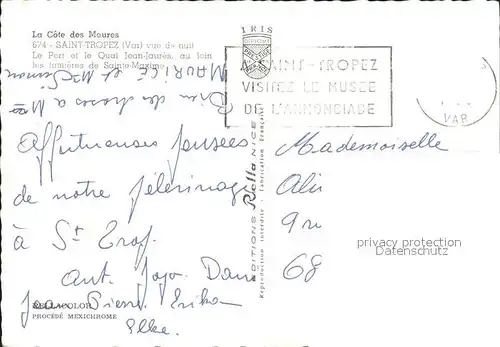 La Côte des Maures
674 - SAINT-TROPEZ (Var) vue de nuit
Le Port et le Quai Jean-Jaurès, au loin
les lumières de Sainte-Maxime
IRIS
A SAINT-TROPEZ
VISITEZ LE MUSEE
DE L'ANNONCIADE
VAR
MAURICE et Mme
Bien des choses a
Affectueuses pensées
de notre pélerinage
à St Trop.
Ant. Jojo. Dany
Pierre Erika
Elke.
BELLACOLOR
PROCÉDÉ MEXICHROME
EDITIONS Rella NICE
Reproduction interdite - Fabrication Française
Mademoiselle
68
privacy protection
Datenschutz